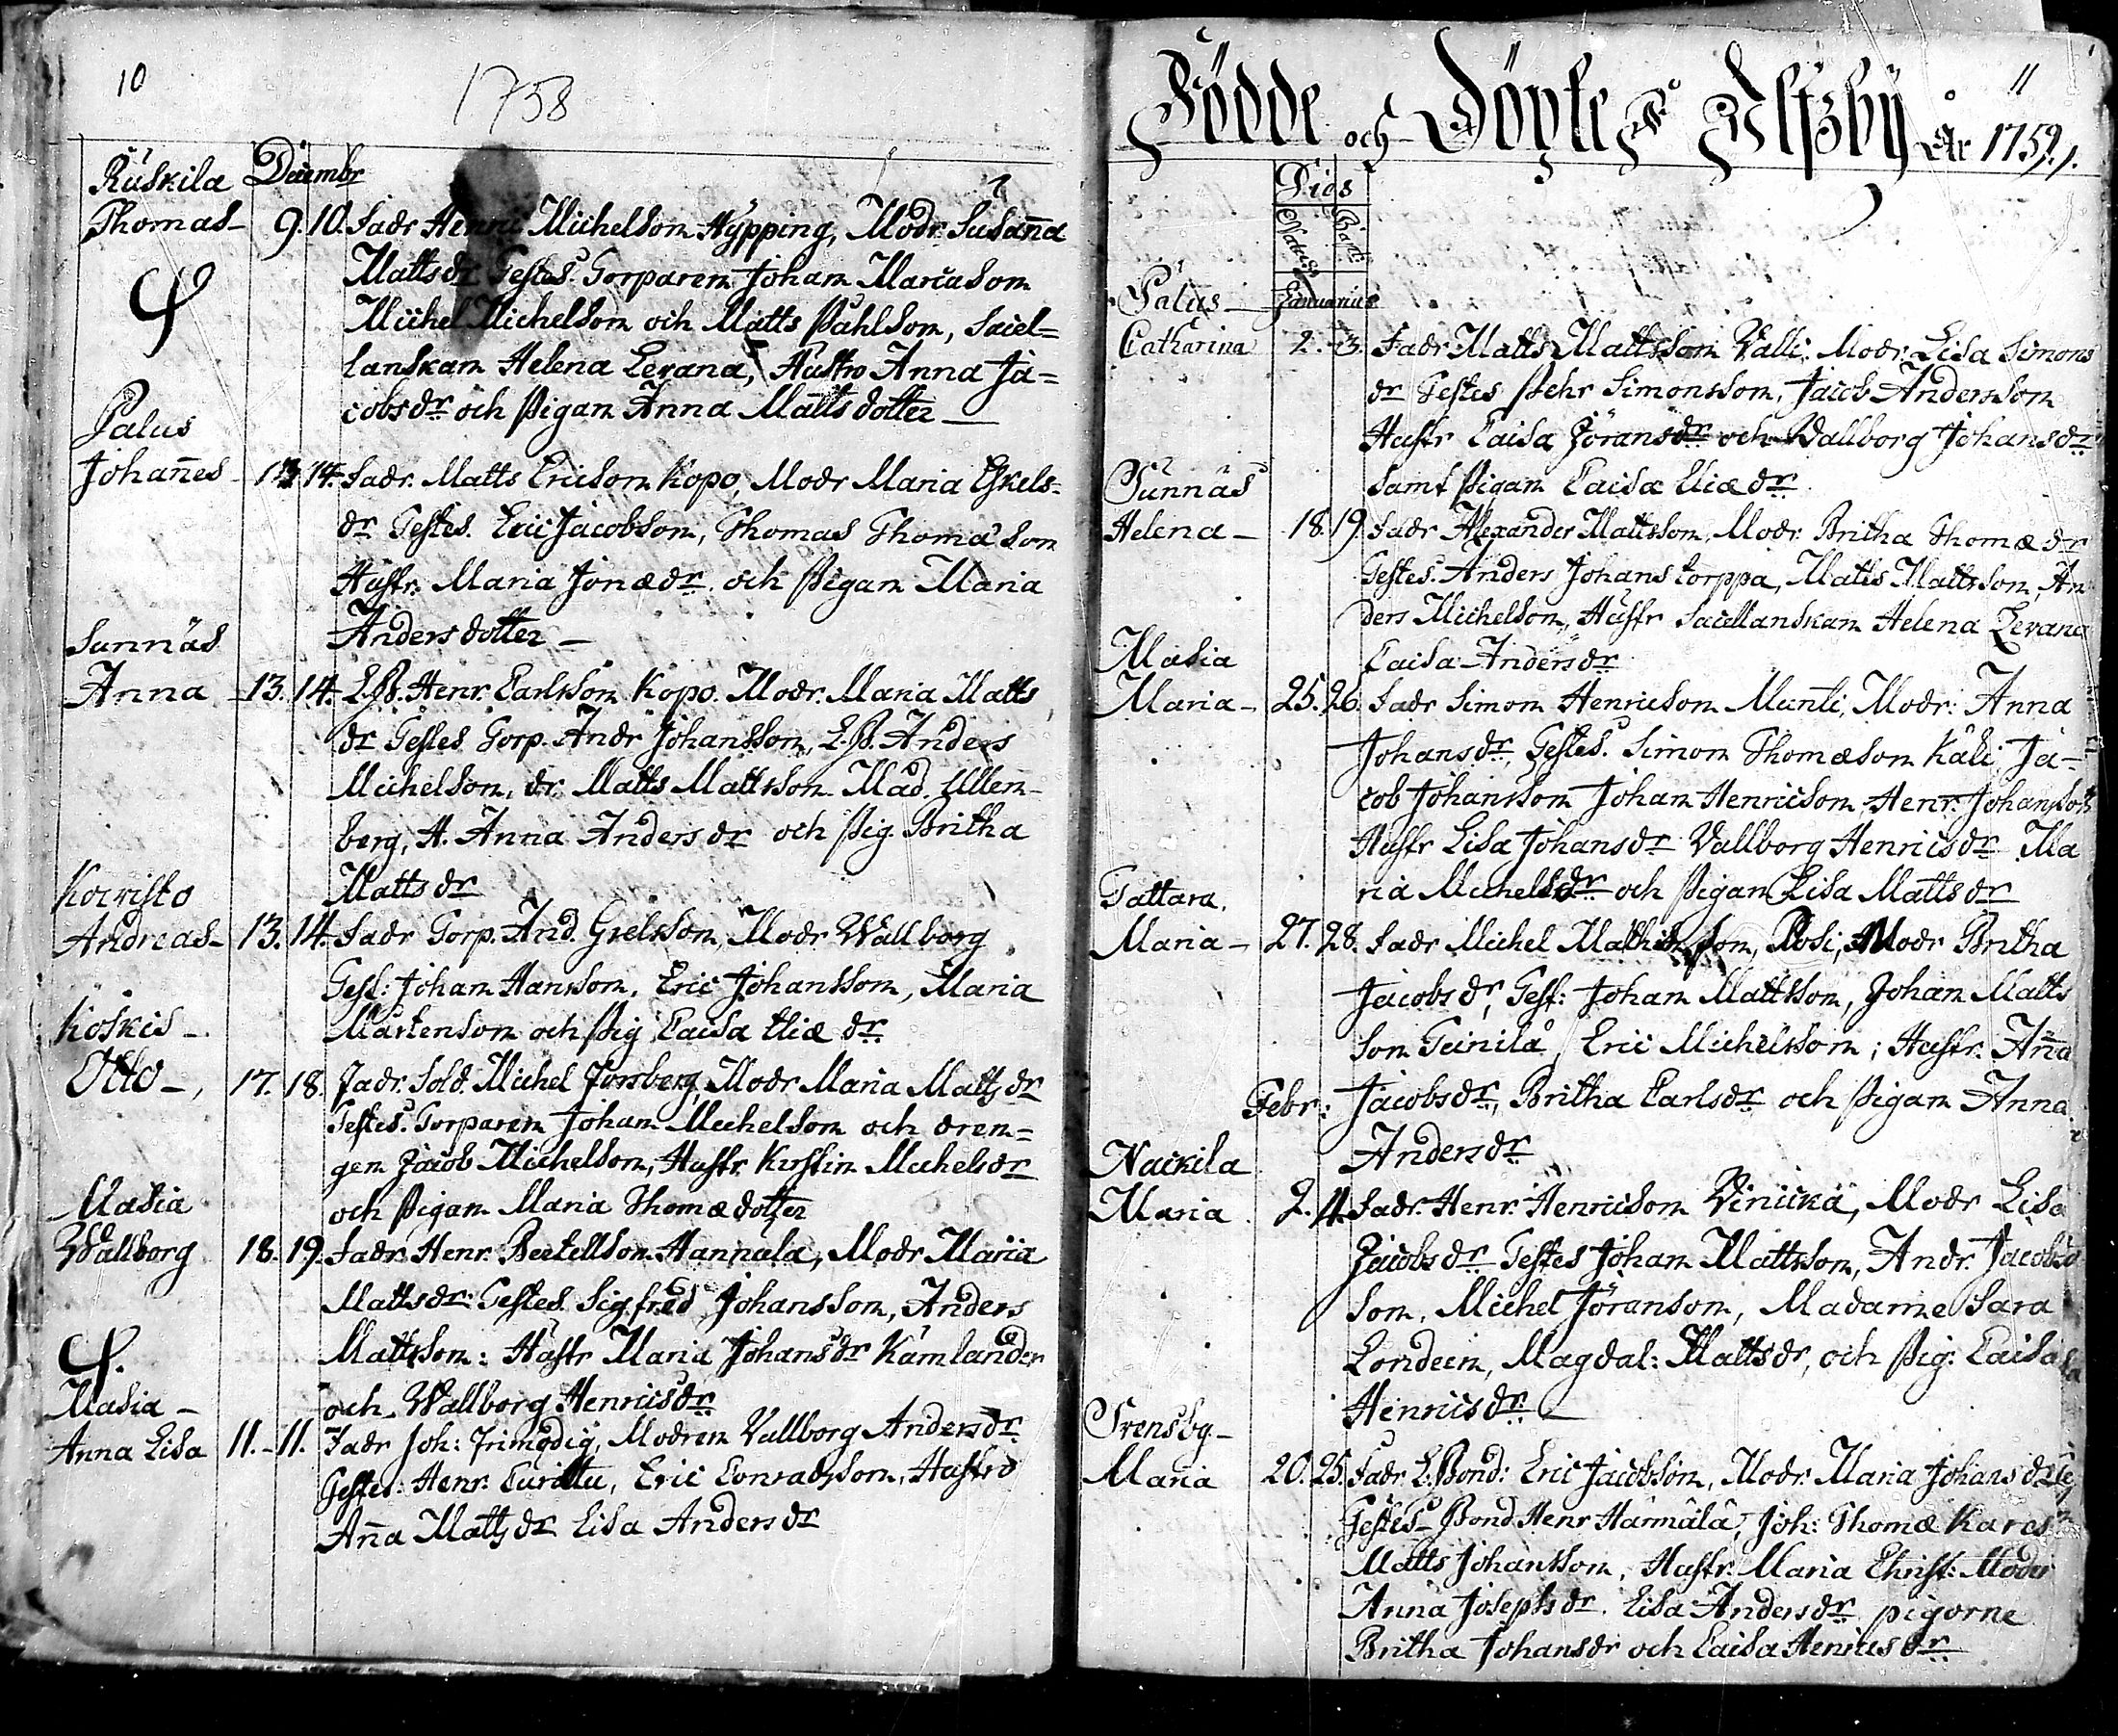 10
1758
Ruskila Decembr
Thomas - 9. 10. Fadr Henric Michelsson Hypping, Modr. Susanna
Mattsdr Testes. Torparen Johan Marcusson
Michel Michelsson och Matts Påhlsson, Sacel=
lanskan Helena Levana, Hustro Anna Ja=
cobsdr och Pigan Anna Mattsdotter
Palus
Johañes - 13. 14. Fadr. Matts Ericsson Kopo, Modr Maria Eskels-
dr Testes. Eric Jacobsson, Thomas Thomasson
Hustr. Maria Jonædr. och Pigan Maria
Andersdotter -
Sunnäs
Anna - 13. 14. L.B. Henr. Carlsson Kopo. Modr. Maria Matts
dr Testes Torp. Andr Johansson, L.B. Anders
Michelsson, dr. Matts Mattsson Mad. Ullen-
berg, H. Anna Andersdr och Pig. Britha
Mattsdr
Koivisto
Andreas - 13. 14. Fadr Torp. And. Grelsson, Modr Wallborg
Test: Johan Hansson, Eric Johansson, Maria
Mårtensson och Pig Caisa Eliædr.
Koskis -
Otto -, 17. 18. Fadr. Sold. Michel Forsberg, Modr Maria Mattsdr
Testes. Torparen Johan Michelsson och dren=
gen Jacob Michelsson, Hustr. Kirstin Michelsdr
och Pigan Maria Thomædotter
Masia
Wallborg 18. 19. Fadr. Henr. Bertellsson Hannula, Modr Maria
Mattsdr. Testes Sigfred Johansson, Anders
Mattsson: Hustr Maria Johansdr Kamlander
och Wallborg Henricsdr.
Masia -
Anna Lisa 11. - 11. Fadr Joh: Frimodig, Modren Vallborg Andersdr
Testes: Henr. Curittu, Eric Conradsson, Hustro
Aña Mattsdr Lisa Andersdr
11
Födde och Döpte i Ulfsby År 1759.
Dies
Natus Bapt.
Palus - Januarius
Catharina 2. 3. Fadr Matts Mattsson Valli. Modr. Lisa Simons
dr Testes Pehr Simonsson, Jacob Andersson
Hustr Caisa Göransdr och Wallborg Johansdr
samt Pigan Caisa Eliædr.
Sunnäs
Helena - 18. 19. Fadr Alexander Mattsson, Modr. Britha Thomædr
Testes. Anders Johanstorppa, Matts Mattsson, An
ders Michelsson, Hustr Sacellanskan Helena Levana
Caisa Andersdr
Masia
Maria - 25. 26. Fadr Simon Henricsson Munti, Modr: Anna
Johansdr, Testes. Simon Thomæson Kali, Ja-
cob Johansson Johan Henricsson, Henr. Johansson
Hustr Lisa Johansdr Vallborg Henricsdr Ma
ria Michelsdr och Pigan Lisa Mattsdr
Tattara.
Maria - 27. 28. Fadr Michel Mathisson, Rosi, Modr Britha
Jacobsdr, Test: Johan Mattsson, Johan Matts
son Teinilä, Eric Michelsson; Hustr. Aña
Febr: Jacobsdr, Britha Carlsdr och Pigan Anna
Andersdr
Nackila
Maria 2. 4. Fadr. Henr. Henricsson Vinickä, Modr Lisa
Jacobsdr Testes Johan Mattsson, Andr. Jacobs
son, Michel Jöransson, Madame Sara
Londeen, Magdal: Mattsdr, och Pig: Caisa
Henricsdr.
Svensby -
Maria 20. 25. Fadr L.Bond: Eric Jacobsson, Modr Maria Johansdr
Testes Bond Henr Hannula, Joh: Thomæ Kares
Matts Johansson, Hustr. Maria Christ: Moder
Anna Josephsdr. Lisa Andersdr pigorne
Britha Johansdr och Caisa Henricsdr